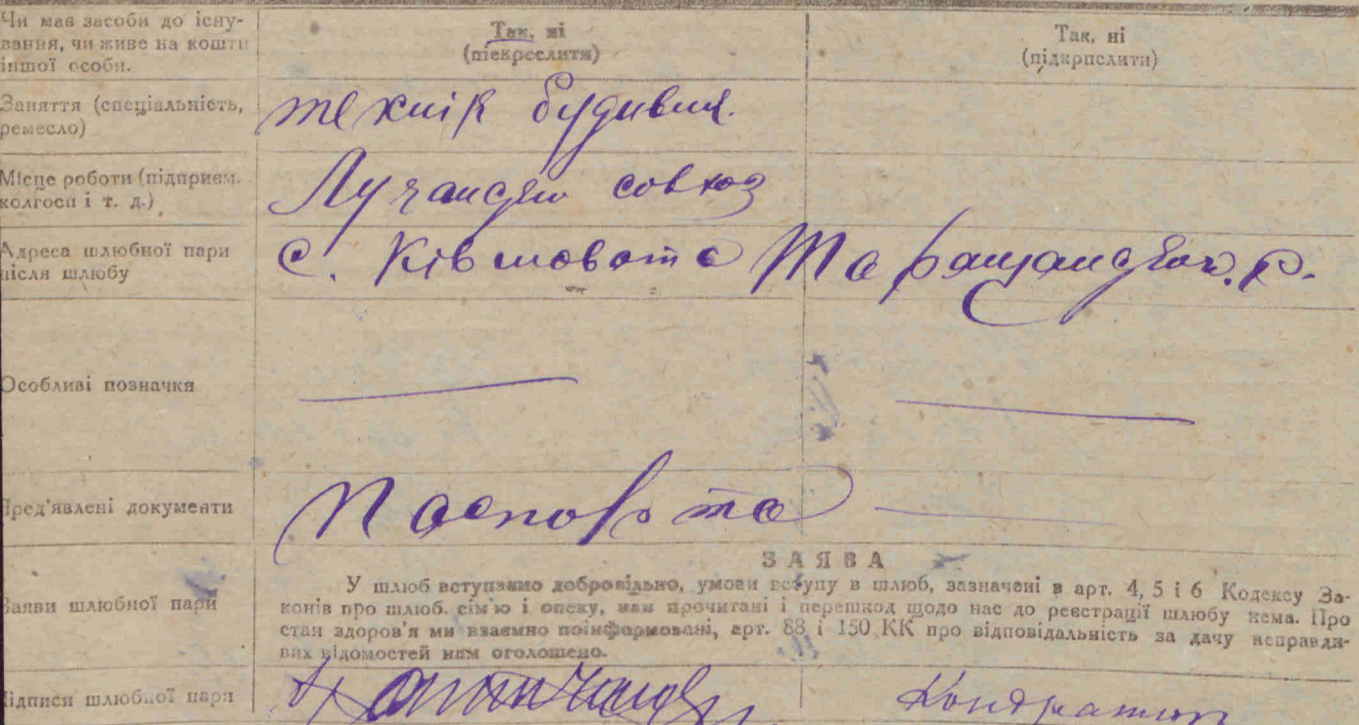 Чи має засоби до існу-
вання, чи живе на кошти
іншої особи.
Так, ні
(підкреслити)
Так, ні
(підкреслити)
Заняття (спеціальність,
ремесло)
технік будивни.
Місце роботи (підприєм.
колгосп і т. д.)
совхоз
Адреса шлюбної пари
після шлюбу
с. Ківшовата Таращанськ. р.
Особливі позначки
Пред'явлені документи
Паспорта
Заяви шлюбної пари
ЗАЯВА
У шлюб вступаємо добровільно, умови вступу в шлюб, зазначені в арт. 4, 5 і 6 Кодексу За-
конів про шлюб. сім'ю і опеку, нам прочитані і перешкод щодо нас до реєстрації шлюбу нема. Про
стан здоров'я ми взаємно поінформовані, арт. 88 і 150 КК про відповідальність за дачу неправди-
вих відомостей нам оголошено.
Підписи шлюбної пари
Кондратюк